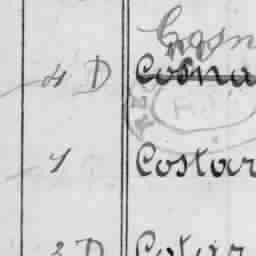 Cosn
4 D Cosna
1 Costar
2 D Cotar